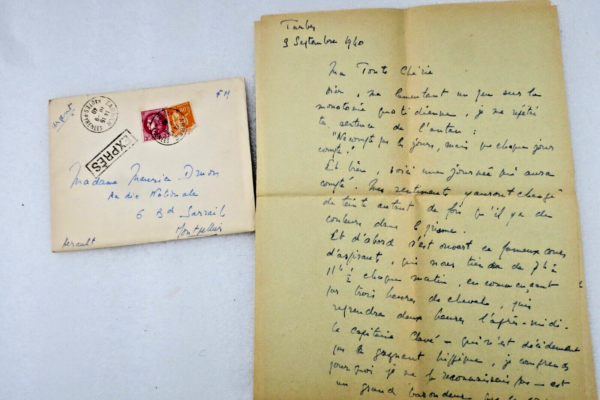 urgent
FM
EXPRÈS
Madame Maurice Druon
Radio Nationale
6 Bd Sarrail
Montpellier
Herault
Tarbes
3 Septembre 1940
Ma Toute Chérie
Hier, me lamentant un peu sur la
monotonie quotidienne, je me répétai
la sentence de l'auteur :
"Ne compte pas les jours, mais que chaque jour
compte".
Et bien, voici une journée qui aura
compté. Mes sentiments y auront changé
de teinte autant de fois qu'il y a de
couleurs dans le prisme.
Et d'abord s'est ouvert ce fameux cours
d'aspirant, qui nous tiendra de 7h à
11h chaque matin, en commençant
par trois heures de cheval, puis
reprendra deux heures l'après-midi.
Le capitaine - qui n'est décidément
pas le hippique, je comprends
pourquoi je ne le reconnaissais pas - est
un grand